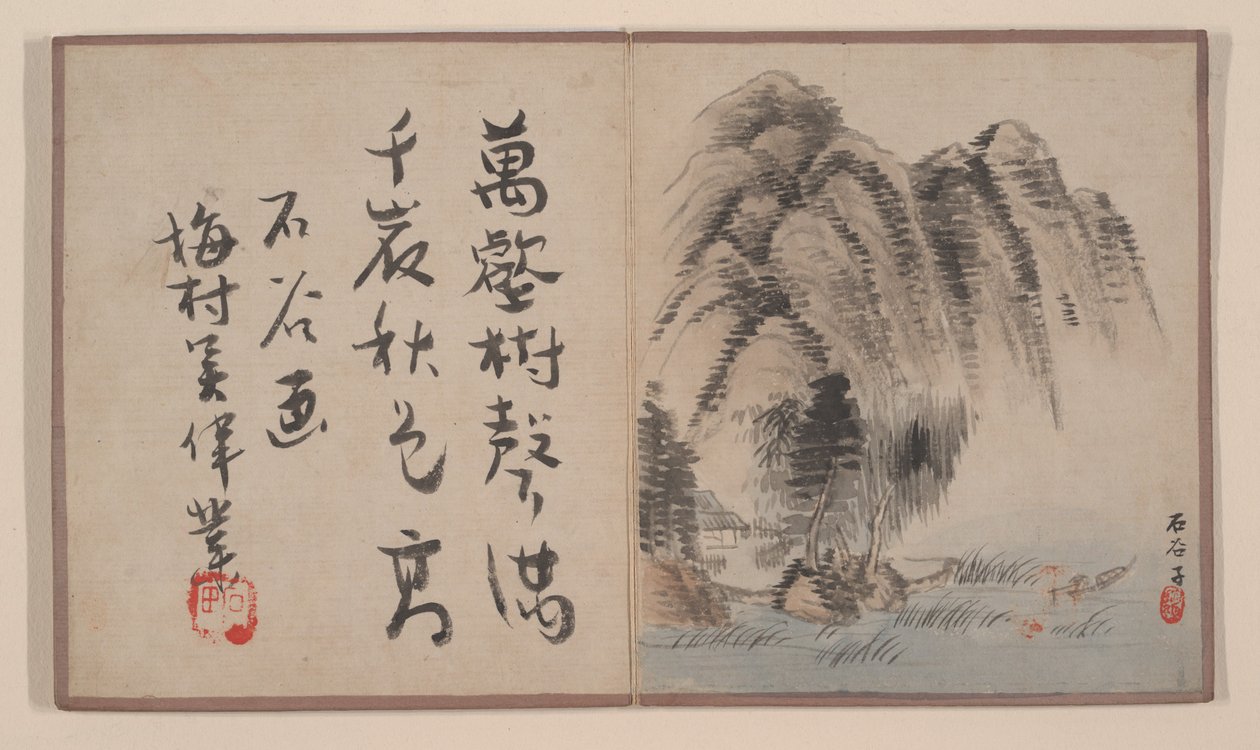 石谷子
萬壑樹聲滿
千巖秋色高
石谷画
梅村吳偉業
石田